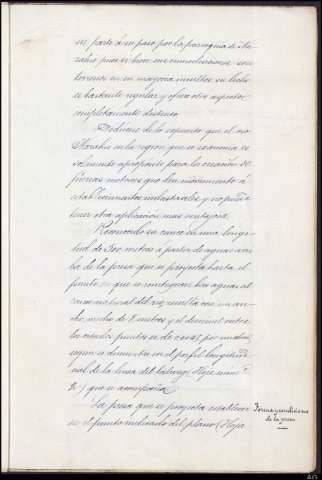 en parte á su paso por la parroquia de Na-
rahio pues si bien sus inmediaciones son
terrenos en su mayoría incultos su lecho
es bastante regular y ofrece otro aspecto
completamente distinto.
Dedúcese de lo expuesto que el rio
Narahio en la region que se examina es
solamente apropósito para la creación de
fuerzas motrices que den movimiento á
establecimientos industriales y no puede
tener otra aplicación mas ventajosa.
Reconocido su cauce en una longi-
tud de 300 metros á partir de aguas arri-
ba de la presa que se proyecta hasta el
punto en que se reintegran las aguas al
cauce natural del rio, resulta con un an-
cho medio de 8 metros y el desnivel entre
los citados puntos es de por medio,
segun se demuestra en el perfil longitudi-
nal de la linea del talweg (Hoja num.º
2º) que se acompaña.
La presa que se proyecta establecer
en el punto indicado del plano (Hoja
Forma y condiciones
de la presa